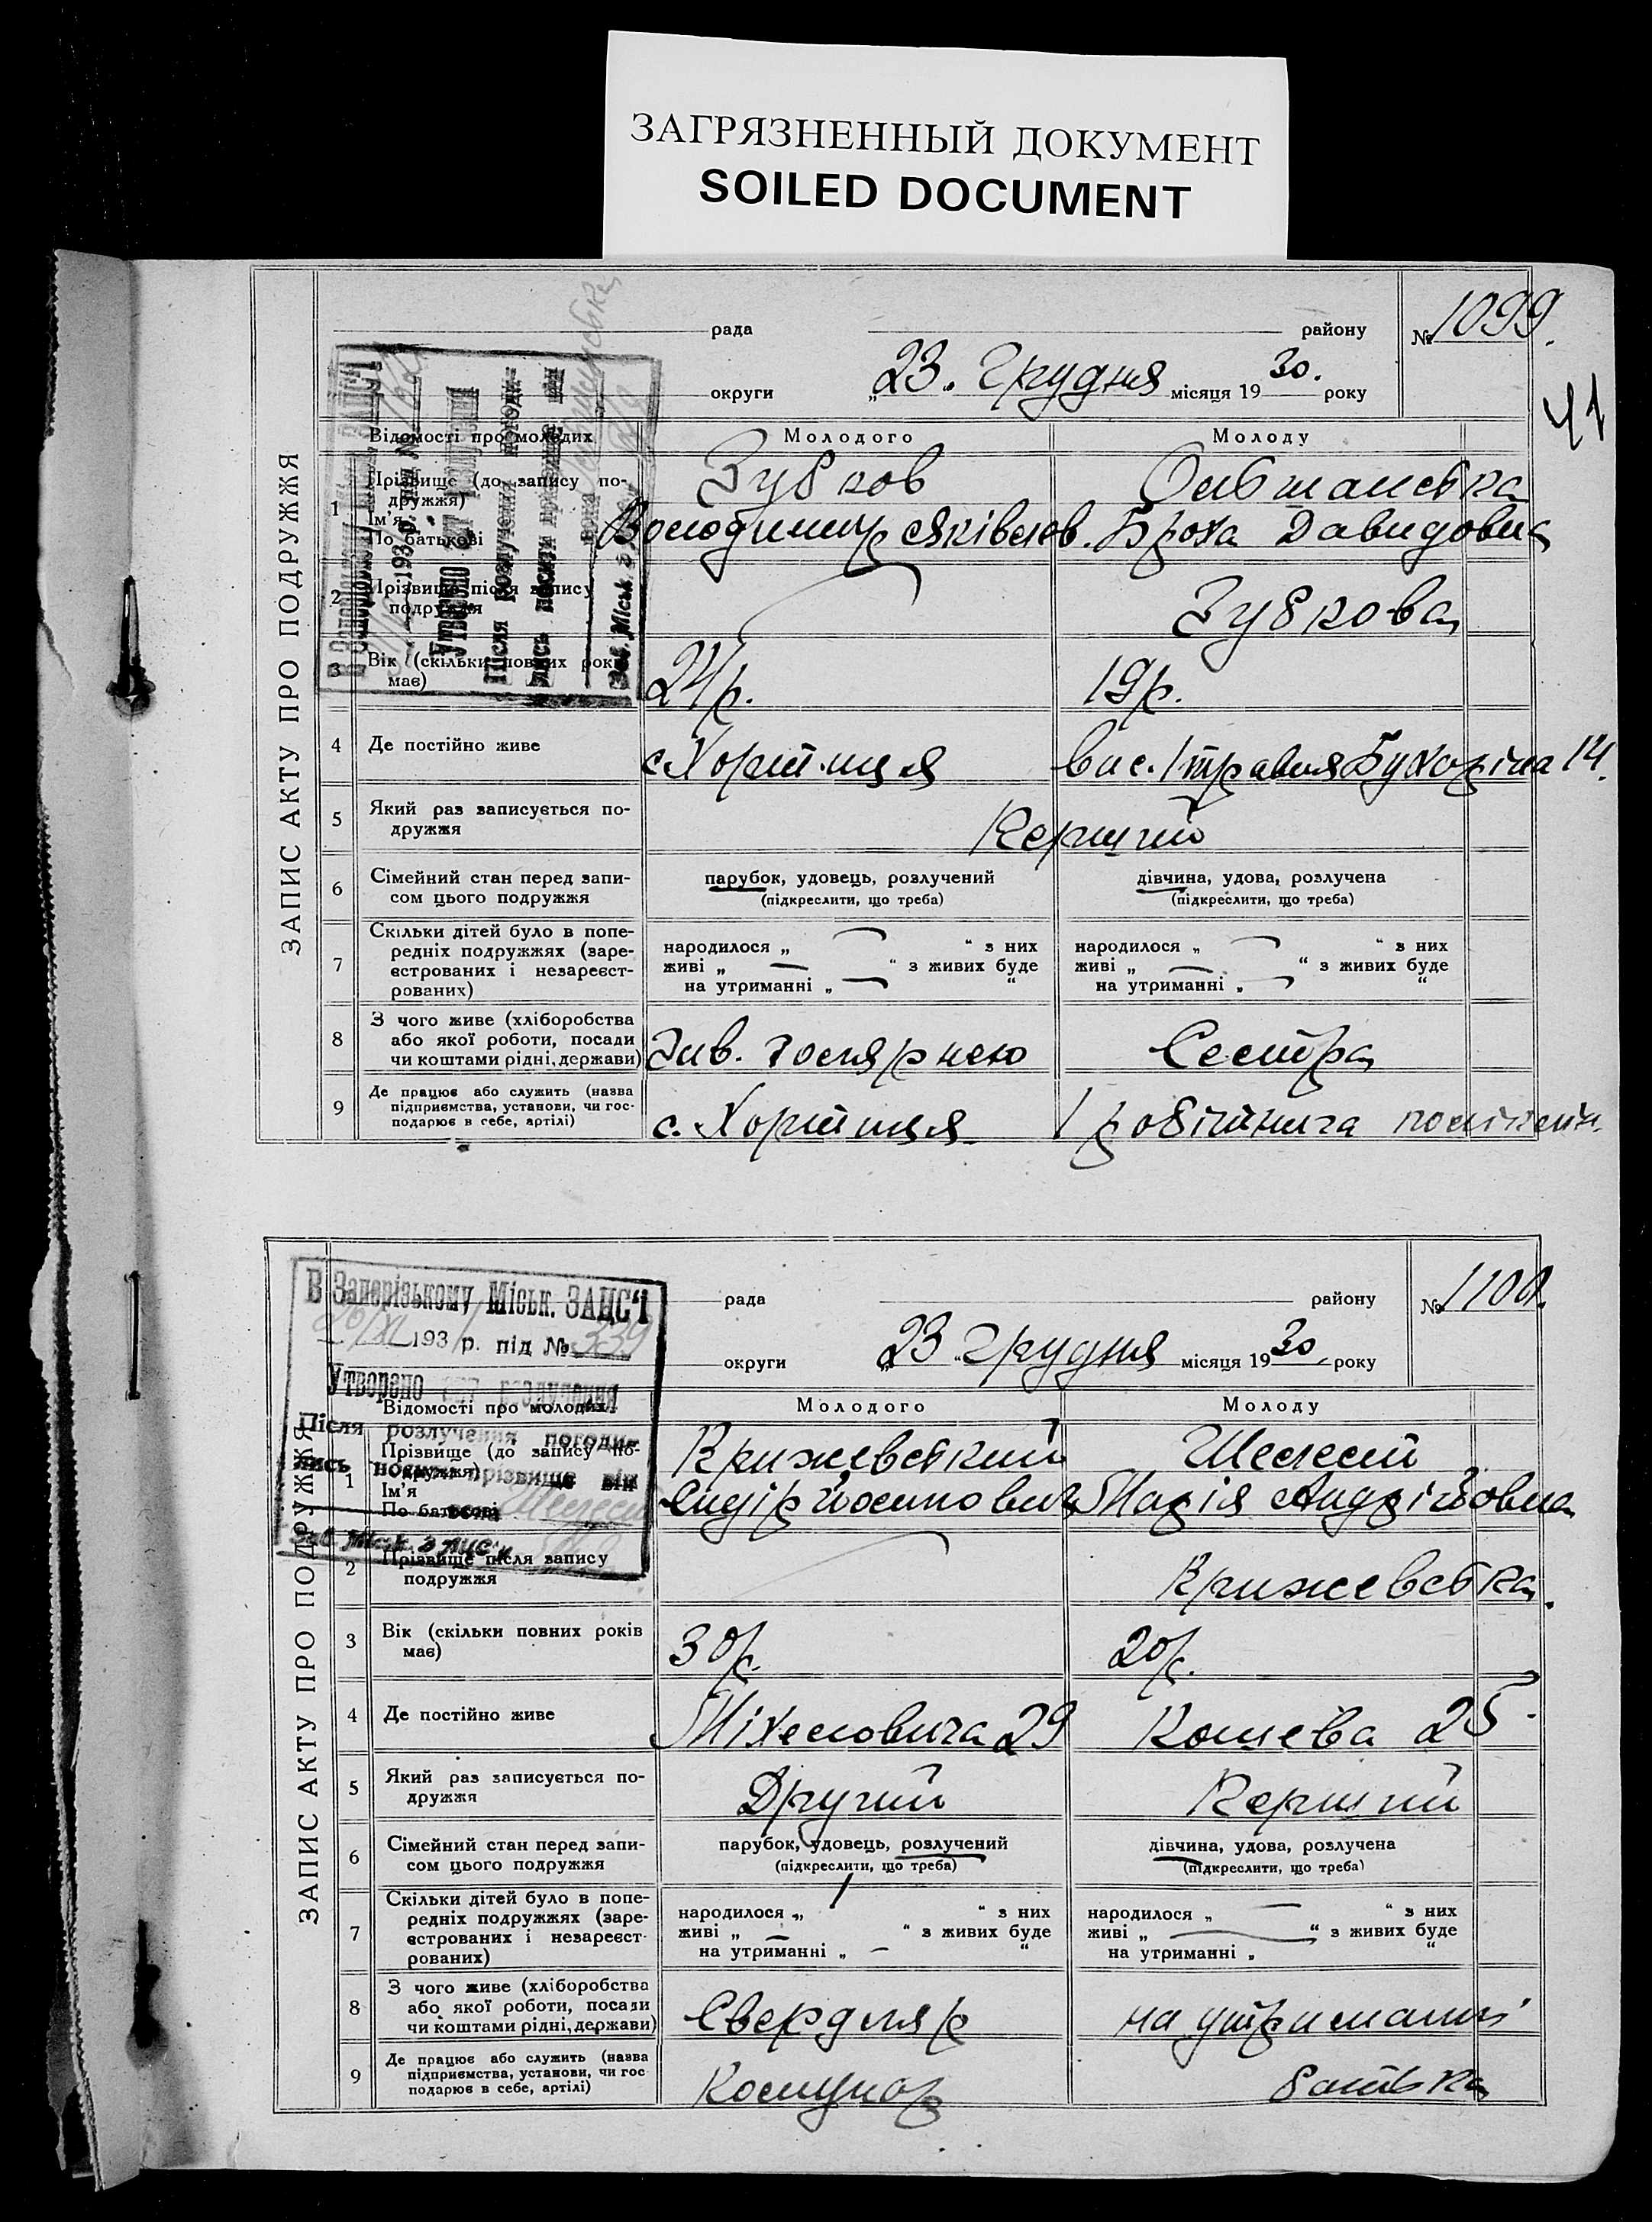 ЗАГРЯЗНЕННЫЙ ДОКУМЕНТ
SOILED DOCUMENT
ЗАПИС АКТУ ПРО ПОДРУЖЖЯ
рада району № 1099.
округи „23. Грудня місяця 19 30. року
41
Відомості про молодих Молодого Молоду
1 Прізвище (до запису по-
дружжя)
Ім'я
По батькові
Зубков
Володимир Яківлев. Броха Давидовна
2 Прізвище після запису
подружжя
Зубкова
3 Вік (скільки повних років
має)
24 р. 19 р.
4 Де постійно живе
с. Хортиця вис. 1 травня Бухаріна 14.
5 Який раз записується по-
дружжя
Перший
6 Сімейний стан перед запи-
сом цього подружжя
парубок, удовець, розлучений
(підкреслити, що треба)
дівчина, удова, розлучена
(підкреслити, що треба)
7 Скільки дітей було в попе-
редніх подружжях (заре-
єстрованих і незареєст-
рованих)
народилося „ — “ з них
живі „ — “ з живих буде
на утриманні „ — “
народилося „ — “ з них
живі „ — “ з живих буде
на утриманні „ — “
8 З чого живе (хліборобства
або якої роботи, посади
чи коштами рідні, держави)
Сестра
9 Де працює або служить (назва
підприємства, установи, чи гос-
подарює в себе, артілі)
с. Хортиця 1 робітнича поліклін.
В Запорізькому Міськ. ЗАЦС'і
193 р. під № 339
Утворено акт розлучення
Після розлучення погоди-
лись носити прізвище він
вона Шелест
Зав. Міськ. ЗАЦС'у
ЗАПИС АКТУ ПРО ПОДРУЖЖЯ
рада району № 1100.
округи „23 “ Грудня місяця 19 30. року
Відомості про молодих Молодого Молоду
1 Прізвище (до запису по-
дружжя)
Ім'я
По батькові
Крижевський Шелест
Сидір Йосипович Марія Андріївовна
2 Прізвище після запису
подружжя
Крижевська.
3 Вік (скільки повних років
має)
30 р. 20 р.
4 Де постійно живе
Міхеловича 29 Кошева 25.
5 Який раз записується по-
дружжя
Другий Перший
6 Сімейний стан перед запи-
сом цього подружжя
парубок, удовець, розлучений
(підкреслити, що треба)
дівчина, удова, розлучена
(підкреслити, що треба)
7 Скільки дітей було в попе-
редніх подружжях (заре-
єстрованих і незареєст-
рованих)
народилося „ “ з них
живі „ — “ з живих буде
на утриманні „ — “
народилося „ — “ з них
живі „ — “ з живих буде
на утриманні „ “
8 З чого живе (хліборобства
або якої роботи, посади
чи коштами рідні, держави)
Свердляр на утриманні
9 Де працює або служить (назва
підприємства, установи, чи гос
подарює в себе, артілі)
Комунар батька